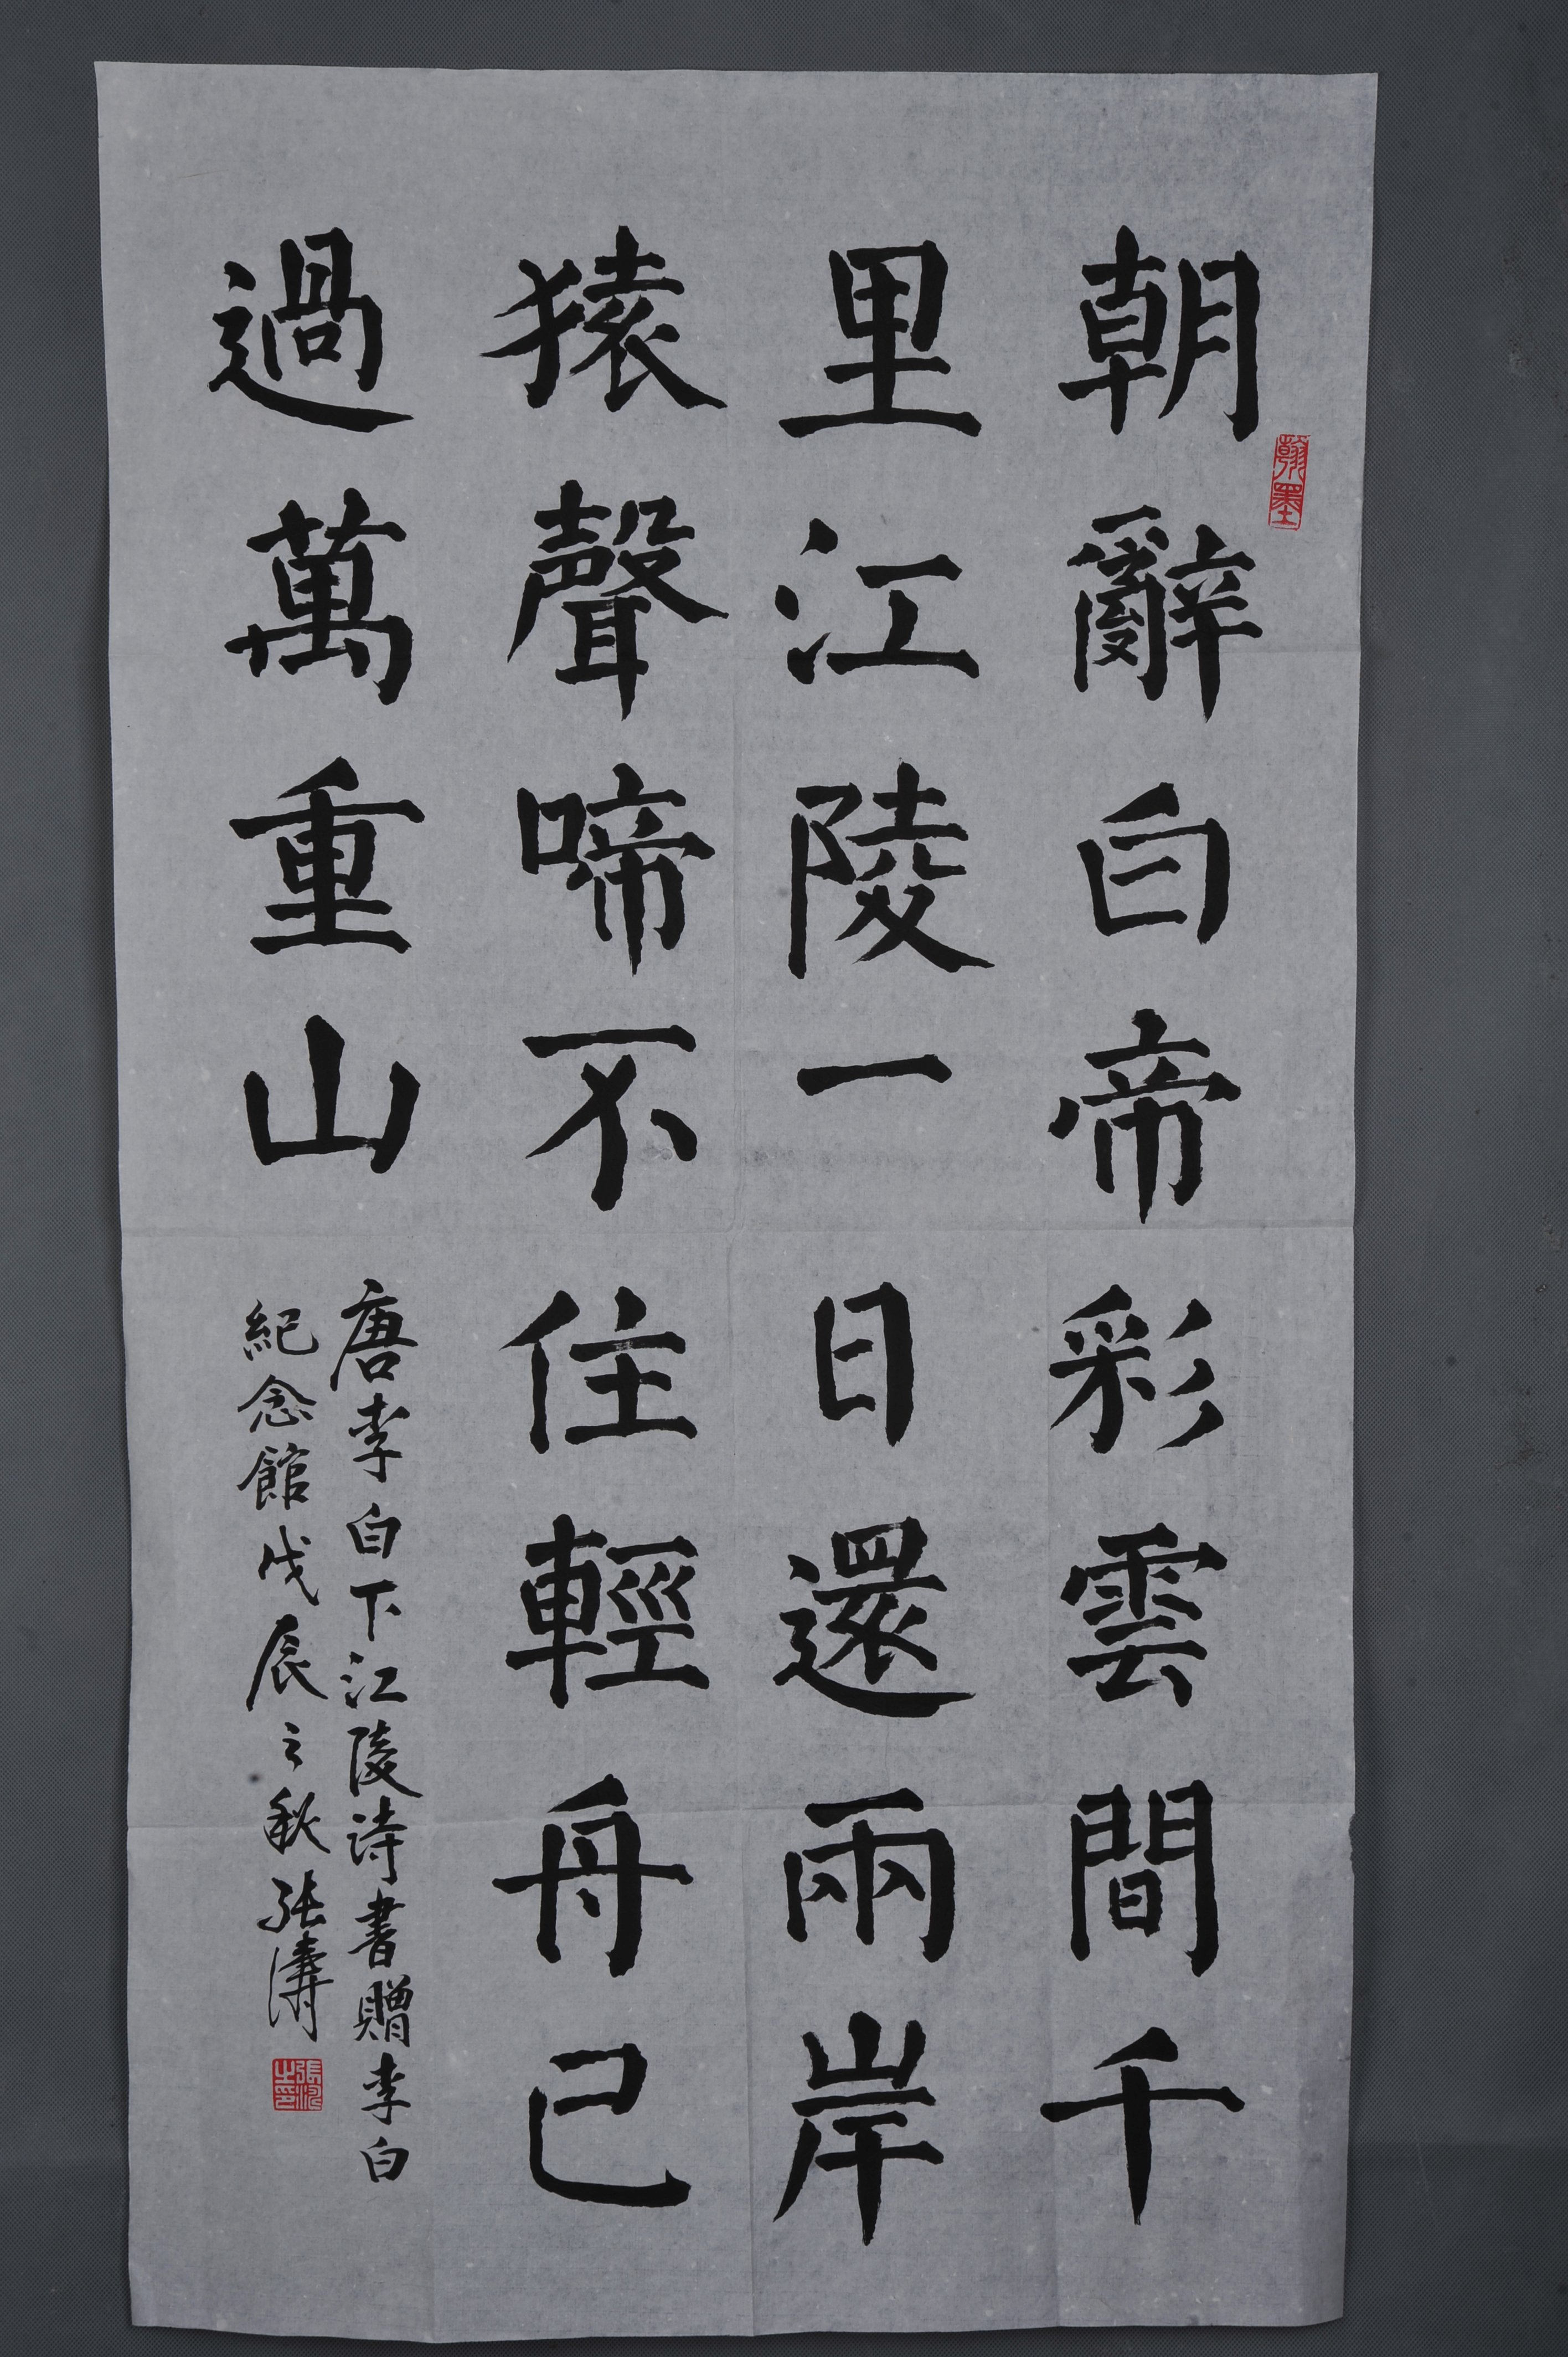 朝辭白帝彩雲間千
里江陵一日還兩岸
猿聲啼不住輕舟已
過萬重山
唐李白下江陵詩書贈李白
紀念館戊辰之秋張濤
翰墨
張濤之印